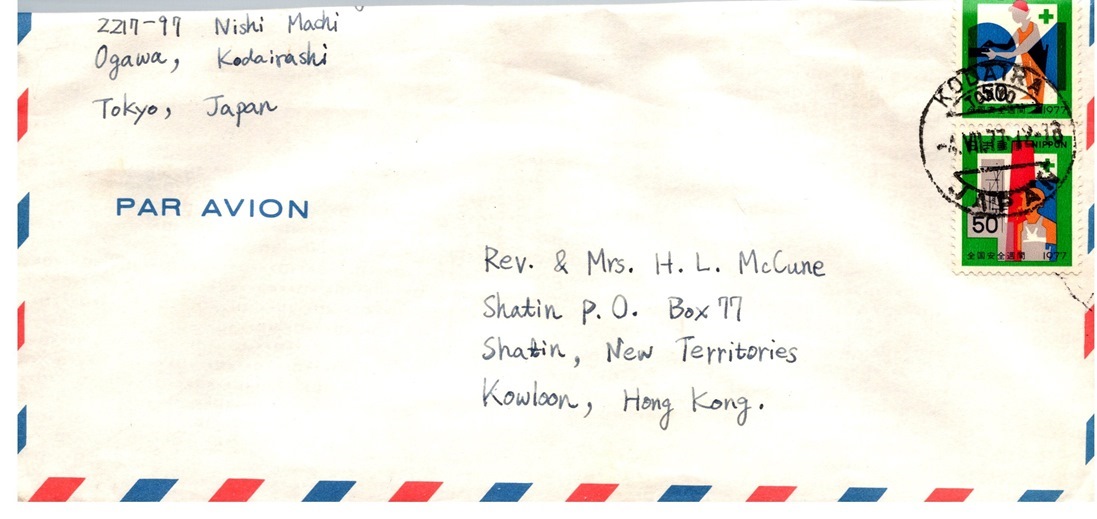 2217-97 Nishi Machi
Ogawa, Kodairashi
Tokyo, Japan
PAR AVION
Rev. & Mrs. H. L. McCune
Shatin P.O. Box 77
Shatin, New Territories
Kowloon, Hong Kong.
KODAIRA
TOKYO
50
1977
VII.77.12-18
NIPPON
JAPAN
50
全国安全週間 1977